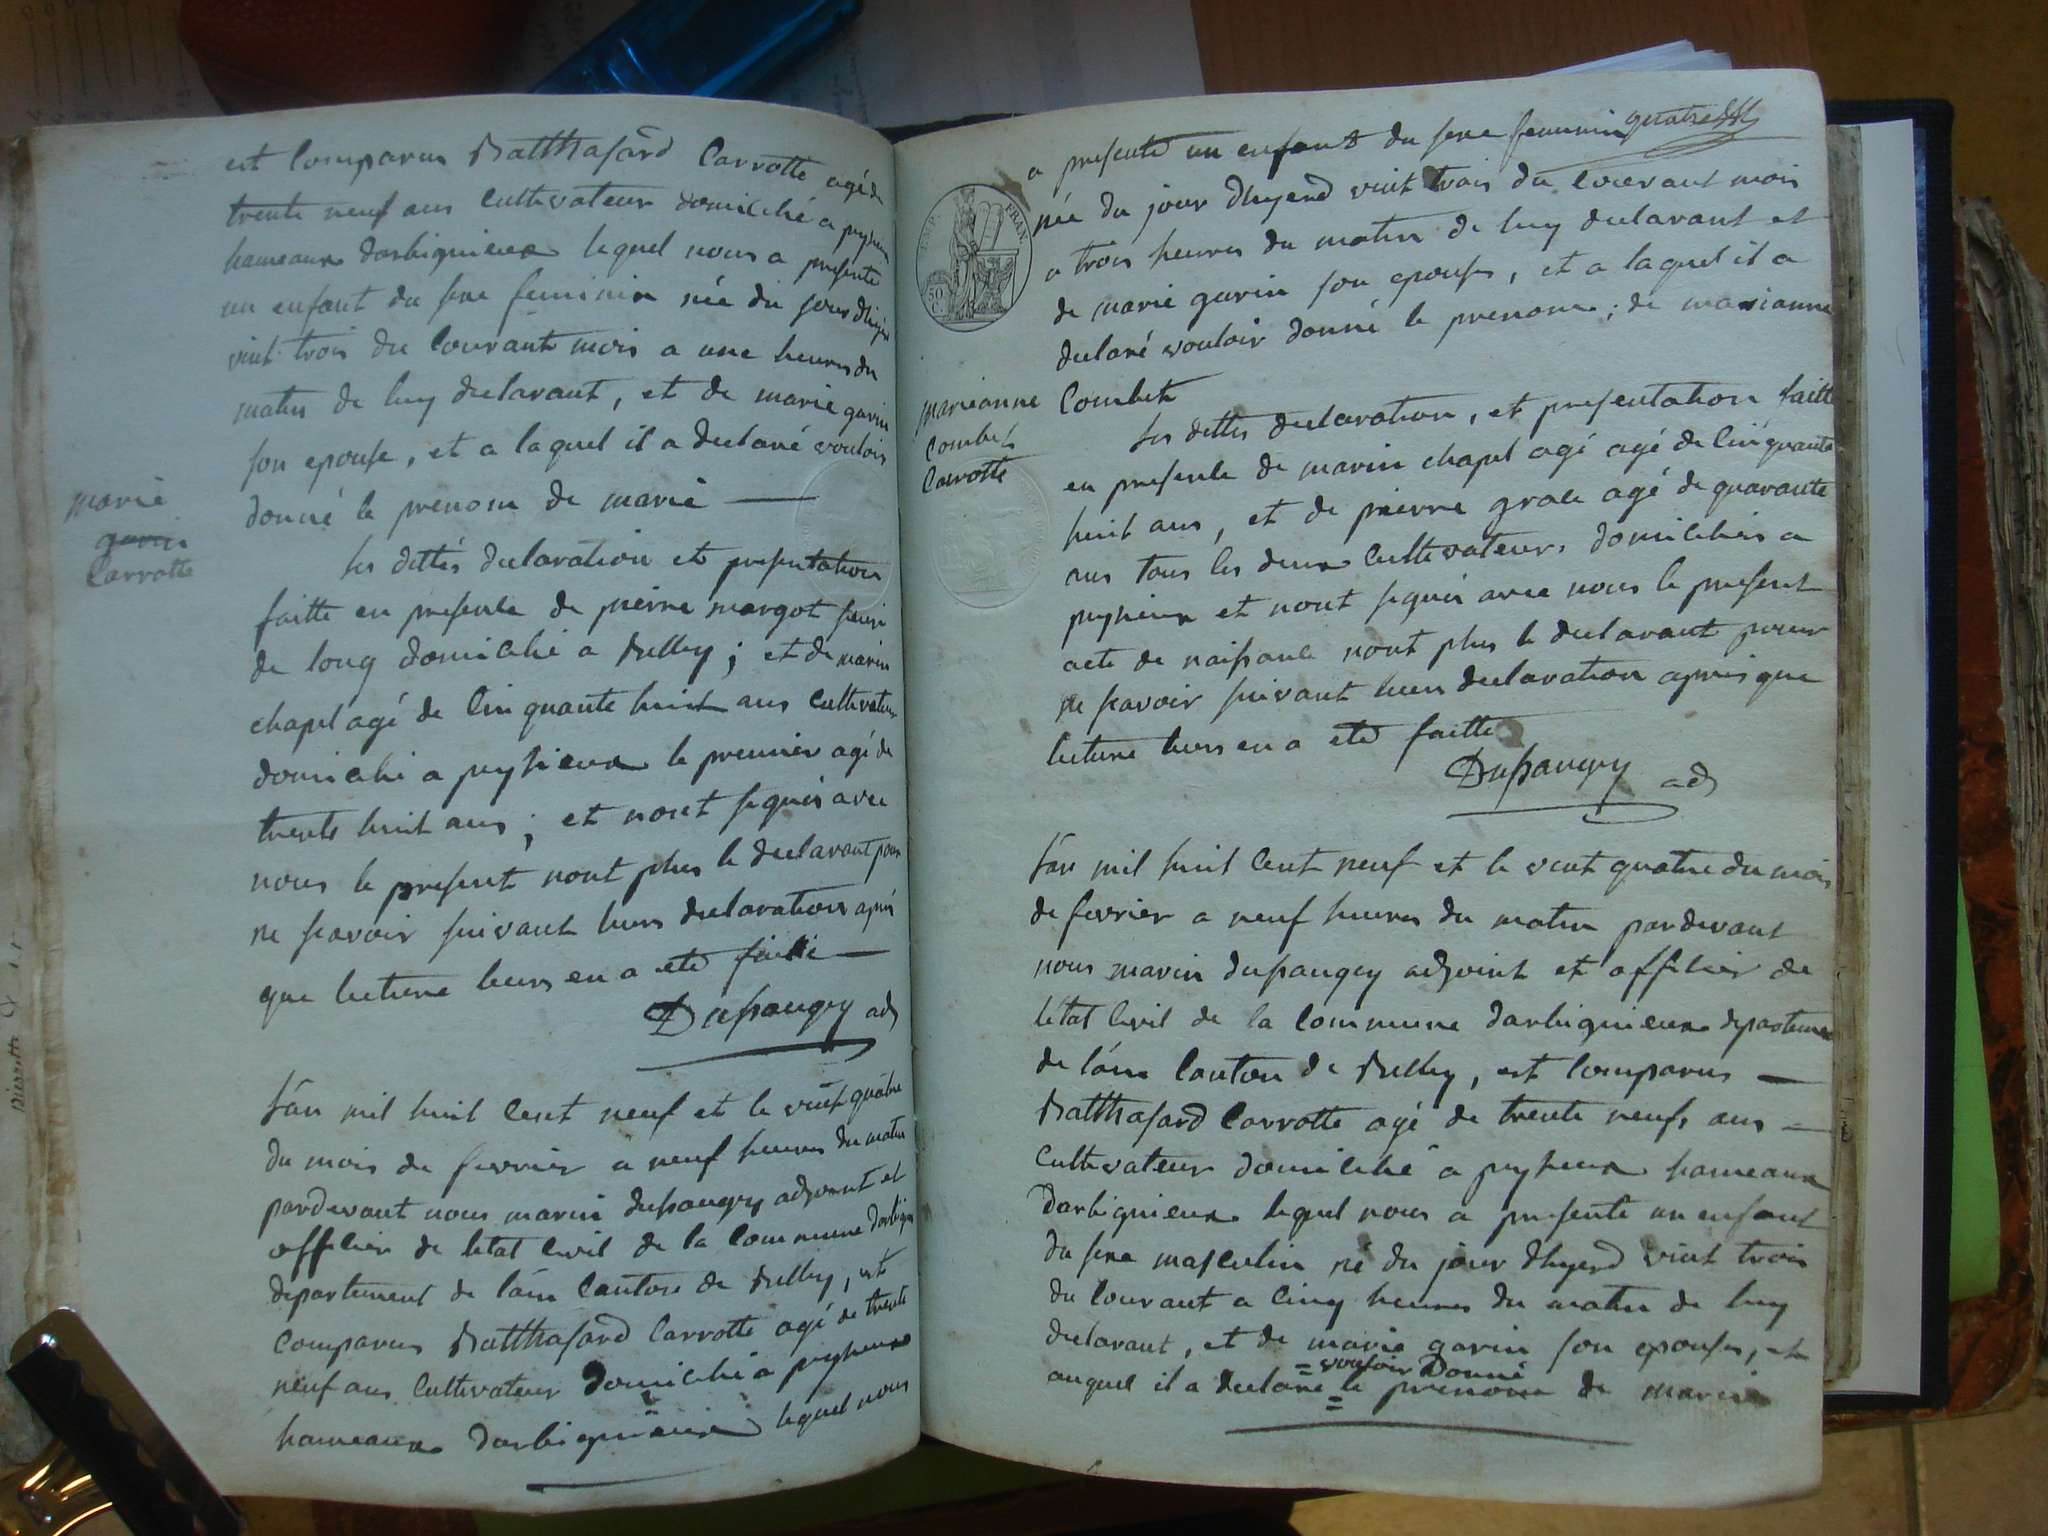 est Comparus Balthasard Carrotte agé de
trente neuf ans Cultivateur domicilié a peysieux
hameaux darbignieux lequel nous a presenté
un enfant du sexe feminin née du jour dhyerd
vint trois du Courant mois a une heures du
matin de luy declarant, et de marie garin
son epouse, et a laquel il a declaré vouloir
donné le prenom de marie
marie
garin
Carrotte
les dittes declaration et presentation
faitte en presence de pierre margot
de long domicilié a Belley; et de marin
chapel agé de Cinquante huit ans Cultivateur
domicilié a peysieux le premier agé de
trente huit ans; et nont signés avec
nous le present nont plus le declarant pour
ne scavoir suivant leurs declaration aprés
que lecture leurs en a eté faitte
Dupaugey adj
Lán mil huit Cent neuf et le vint quatre
du mois de fevrier a neuf heures du matin
pardevant nous marin dupaugey adjoint et
officier de letat Civil de la Commune
departement de láin Canton de Belley, est
Comparus Balthasard Carrotte agé de trente
neuf ans Cultivateur domicilié a peysieux
hameaux darbignieux lequel nous
quatre
a presenté un enfant du sexe feminin
née du jour dhyerd vint trois du Courant mois
a trois heures du matin de luy declarant et
de marie garin son epouse, et a laquel il a
declaré vouloir donné le prenom; de marianne
Combet
marianne
Combet
Carrotte
les dittes declaration, et presentation faitte
en presence de marin chapel agé agé de Cinquante
huit ans, et de pierre grale agé de quarante
ans tous les deux Cultivateurs domiciliés a
peysieux et nont signés avec nous le present
acte de naissance nont plus le declarant pour
ne scavoir suivant leurs declaration aprés que
lecture leurs en a eté faitte
Dupaugey adj
Lán mil huit Cent neuf et le vint quatre du mois
de fevrier a neuf heures du matin pardevant
nous marin dupaugey adjoint et officier de
létat Civil de la Commune darbignieux departement
de láin Canton de Belley, est Comparus
Balthasard Carrotte agé de trente neufs ans
Cultivateur domicilié a peysieux hameaux
darbignieux lequel nous a presenté un enfant
du sexe masculin né du jour dhyerd vint trois
du Courant a Cinq heures du matin de luy
declarant, et de marie garin son epouse, et
= vouloir Donné
auquel il a declaré = le prenom de marin